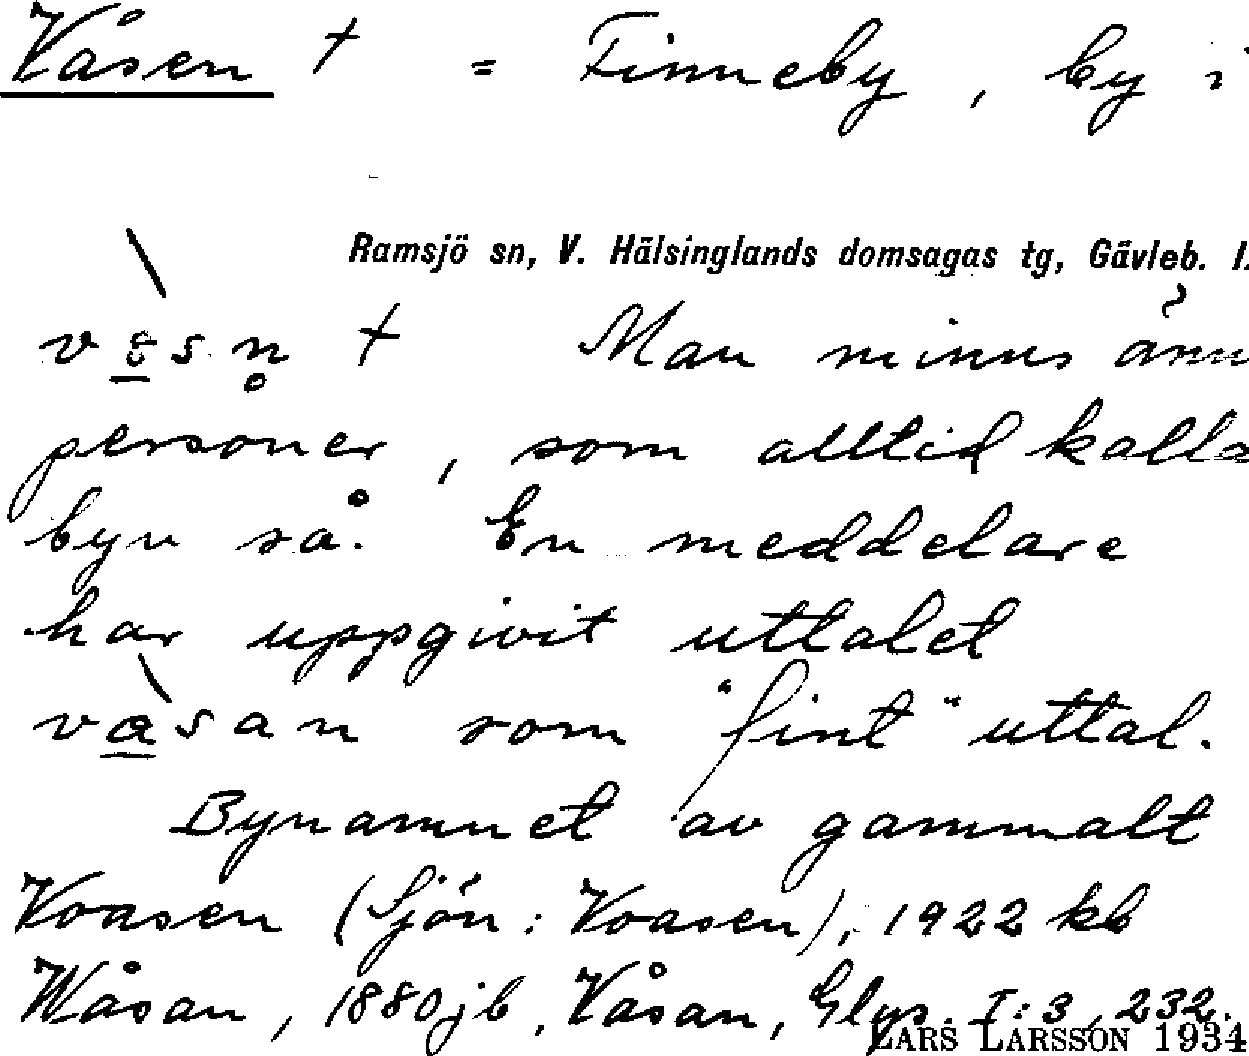 Våsen † = Finneby, by i
Ramsjö sn, V. Hälsinglands domsagas tg, Gävleb. l.
† Man minns ännu
personer, som alltid kalla
byn så. En meddelare
har uppgivit uttalet
vàsan som "fint" uttal.
Bynamnet av gammalt
Voasen (Sjön: Voasen), 1922 kb
Wåsan, 1880 jb, Våsan, Glys. I:3, 232.
LARS LARSSON 1934